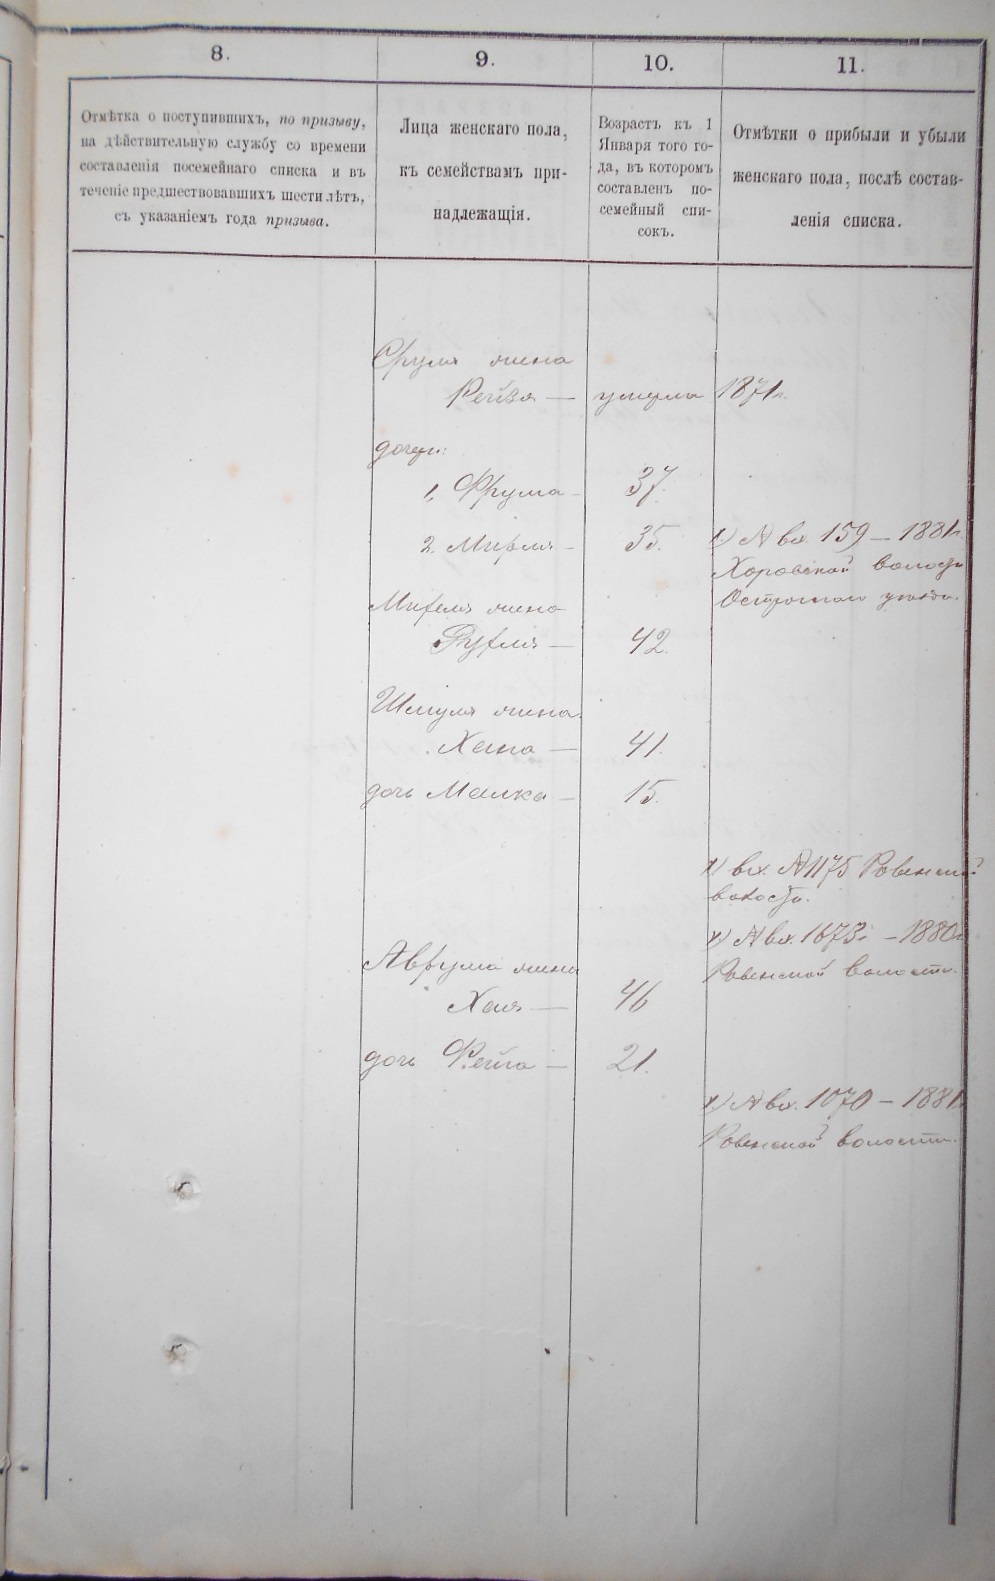 8.
9.
10.
11.
Отмѣтка о поступившихъ, по призыву,
на дѣйствительную службу со времени
составленія посемейнаго списка и въ
теченіе предшествовавшихъ шести лѣтъ,
съ указаніемъ года призыва.
Лица женскаго пола,
къ семействамъ при-
надлежащія.
Возрастъ къ 1
Января того го-
да, въ которомъ
составленъ по-
семейный спи-
сокъ.
Отмѣтки о прибыли и убыли
женскаго пола, послѣ состав-
ленія списка.
Сруля жена
Рейзя — умерла 1871г.
дочери:
1, Фрума - 37.
2. Мирля - 35.
1) № вх. 159 — 1881г.
Хоровской волости
Острожскаго уѣзда.
Мирля жена
Рухля — 42.
Шмуля жена
Хана — 41.
дочь Малка — 15.
1) вх. № 1175 Ровенской
волости.
1) № вх. 1673 — 1880г.
Ровенской волости.
Аврума жена
Хая — 46
дочь Фейга — 21.
1) № вх. 1070 — 1881г.
Ровенской волости.